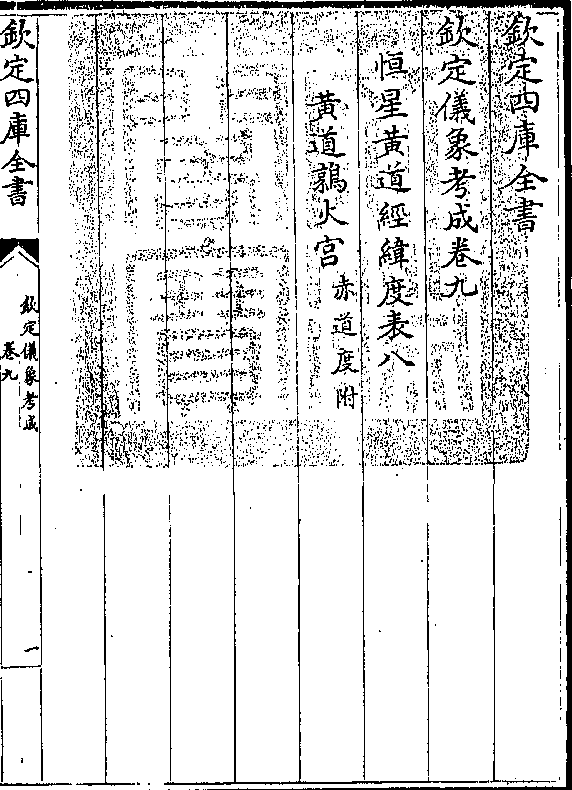 欽定四庫全書
欽定儀象考成卷九
恒星黃道經緯度表八
黃道鶉火宮 赤道度附
欽定四庫全書
欽定儀象考成
卷九
一